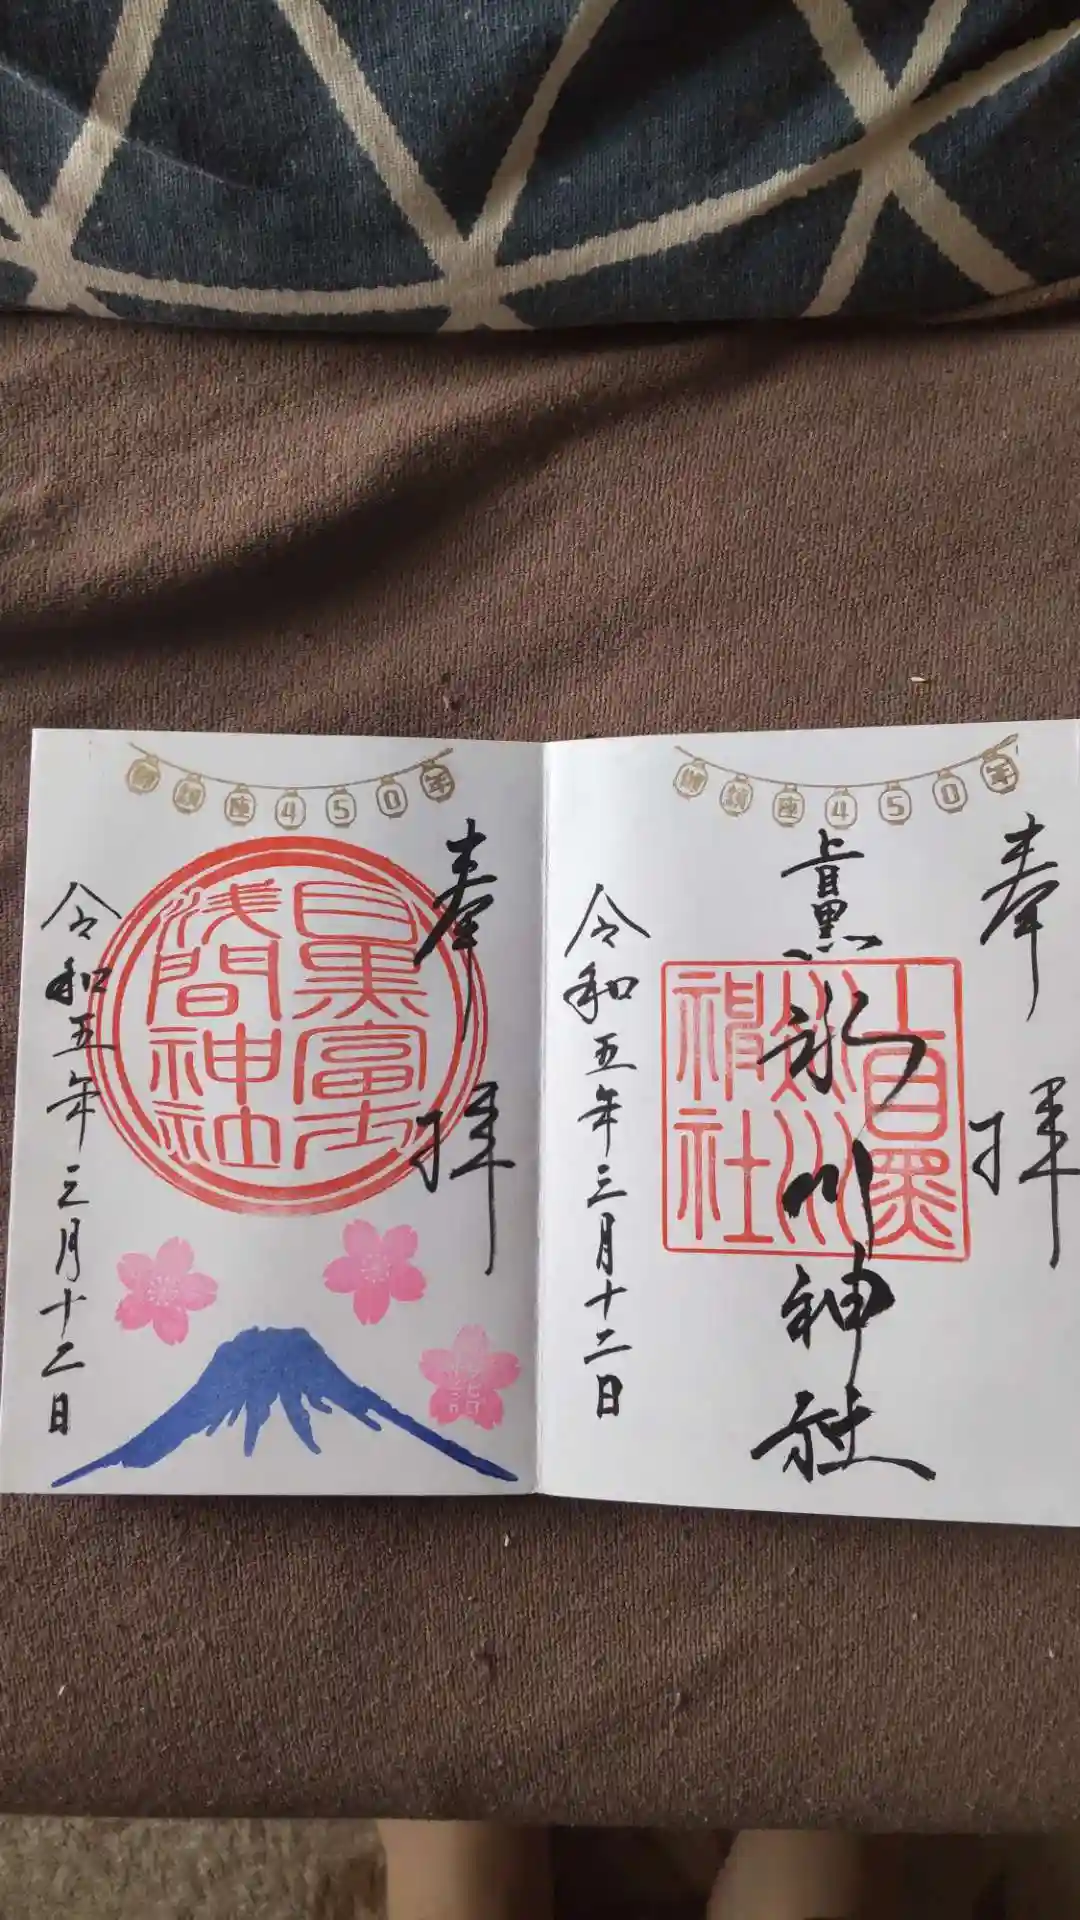 御鎮座450年
奉拝
上目黒
氷川神社
上目黒
氷川神社
令和五年三月十二日
御鎮座450年
奉拝
目黒富士
浅間神社
令和五年三月十二日